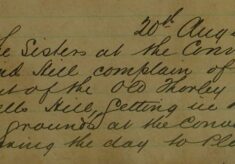 20th Aug
e Sisters at the Conv
nd Hill complain of
t of the Old Thorley
ells Hill, getting in
grounds at the Conve
ring the day to Pl